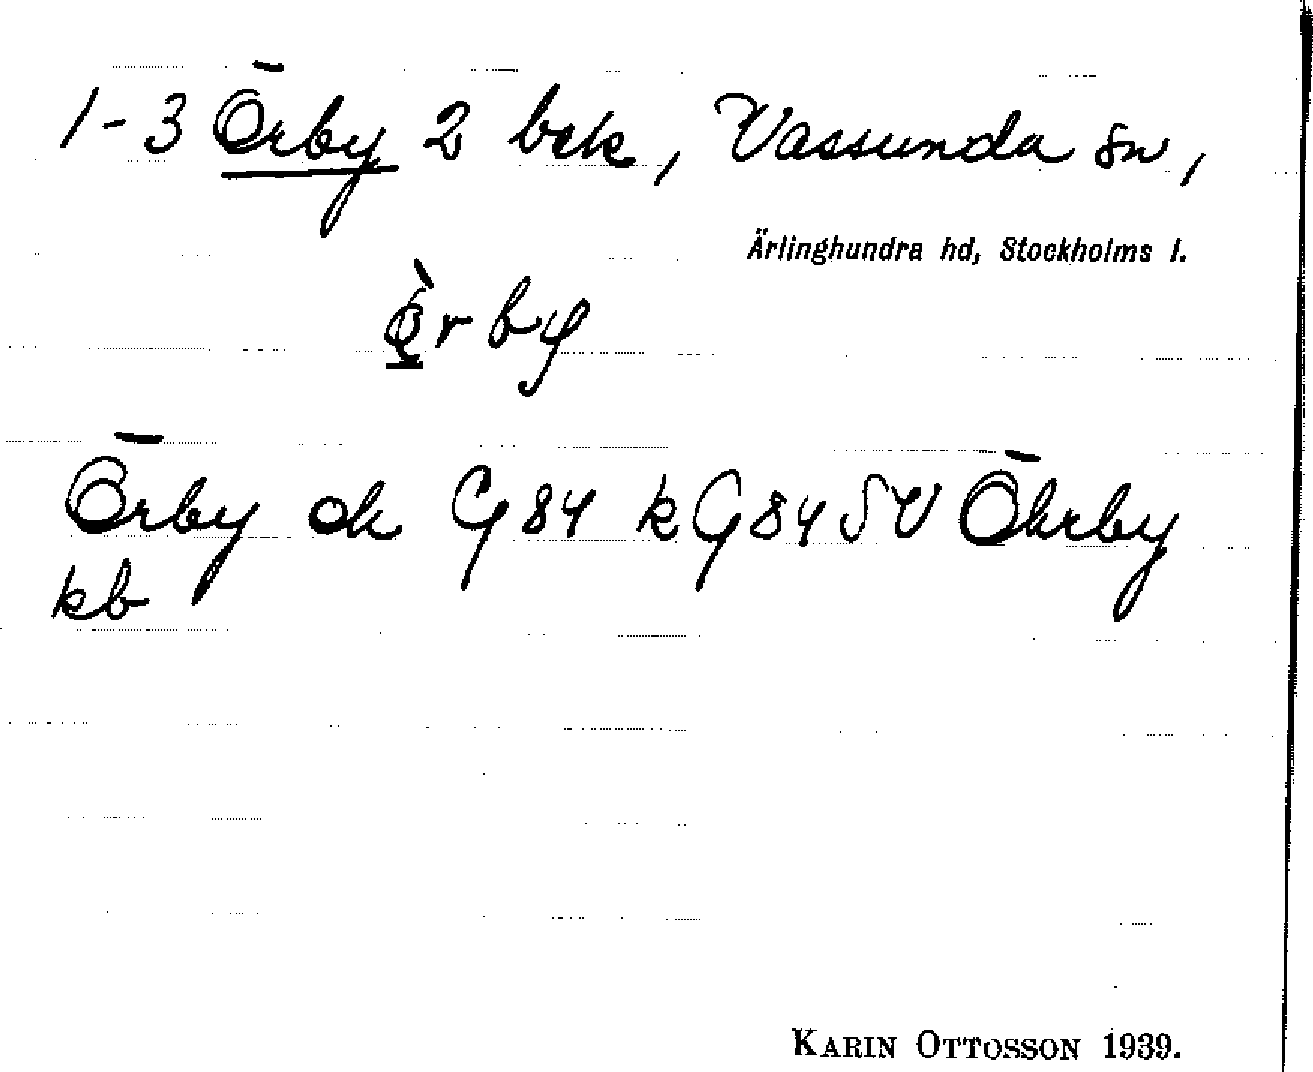 1-3 Örby 2 bek, Vassunda sn,
Ärlinghundra hd, Stockholms l.
Örby ek G84 kG84 SV Öhrby
kb
KARIN OTTOSSON 1939.